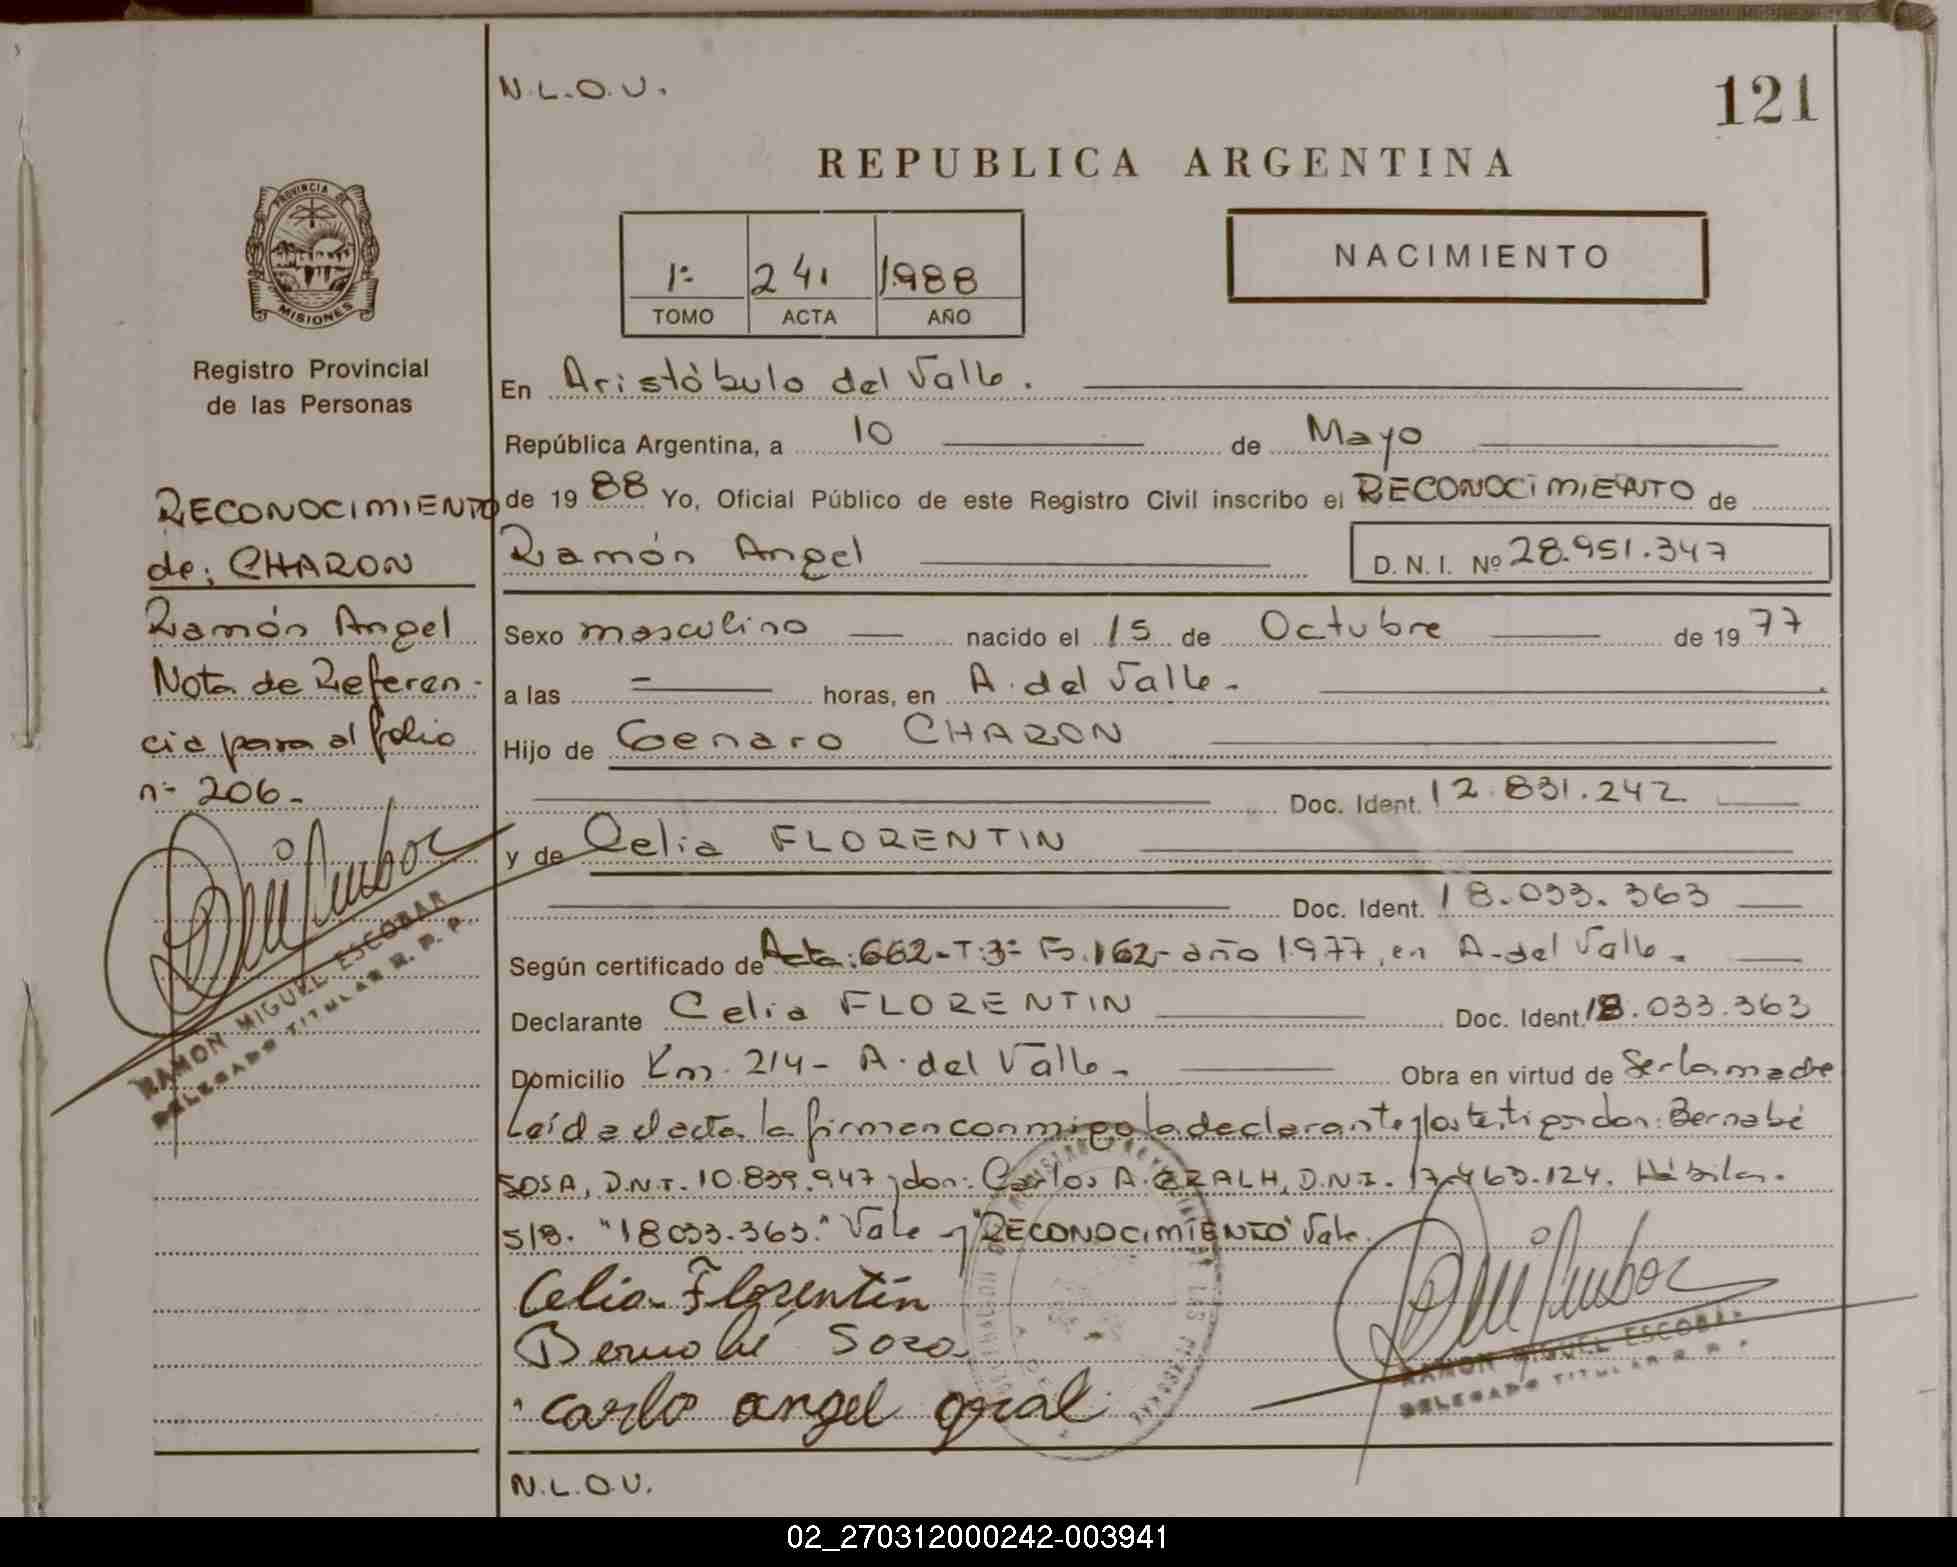 N.L.O.U.
121
REPUBLICA ARGENTINA
PROVINCIA DE
MISIONES
1º 241 1988
TOMO ACTA AÑO
NACIMIENTO
Registro Provincial
de las Personas
En Aristóbulo del Valle.
República Argentina, a 10 de Mayo
de 1988 Yo, Oficial Público de este Registro Civil inscribo el RECONOCIMIENTO de
Ramón Angel D. N. I. Nº 28.951.347
Sexo masculino nacido el 15 de Octubre de 1977
a las = horas, en A. del Valle.
Hijo de Genaro CHARON
Doc. Ident. 12.831.242
y de Celia FLORENTIN
Doc. Ident. 18.033.363
Según certificado de Acta: 662-T:3º Fo.162- año 1977, en A. del Valle.
Declarante Celia FLORENTIN Doc. Ident. 18.033.363
Domicilio Km. 214- A. del Valle- Obra en virtud de Ser la madre
Leída el acta, la firman conmigo la declarante y los testigos don: Bernabé
SOSA, D.N.I. 10.839.947 y don: Carlos A. GRALH, D.N.I. 17.463.124. Hábiles.
S/B. "18033.363." Vale y "RECONOCIMIENTO" Vale.
Celia Florentín
Bernabé Sosa
Carlo angel gral
RAMON MIGUEL ESCOBAR
DELEGADO TITULAR R. P. P.
N.L.O.U.
RECONOCIMIENTO
de: CHARON
Ramón Angel
Nota de Referen-
cia para al folio
nº 206-
RAMON MIGUEL ESCOBAR
DELEGADO TITULAR R. P. P.
02_270312000242-003941